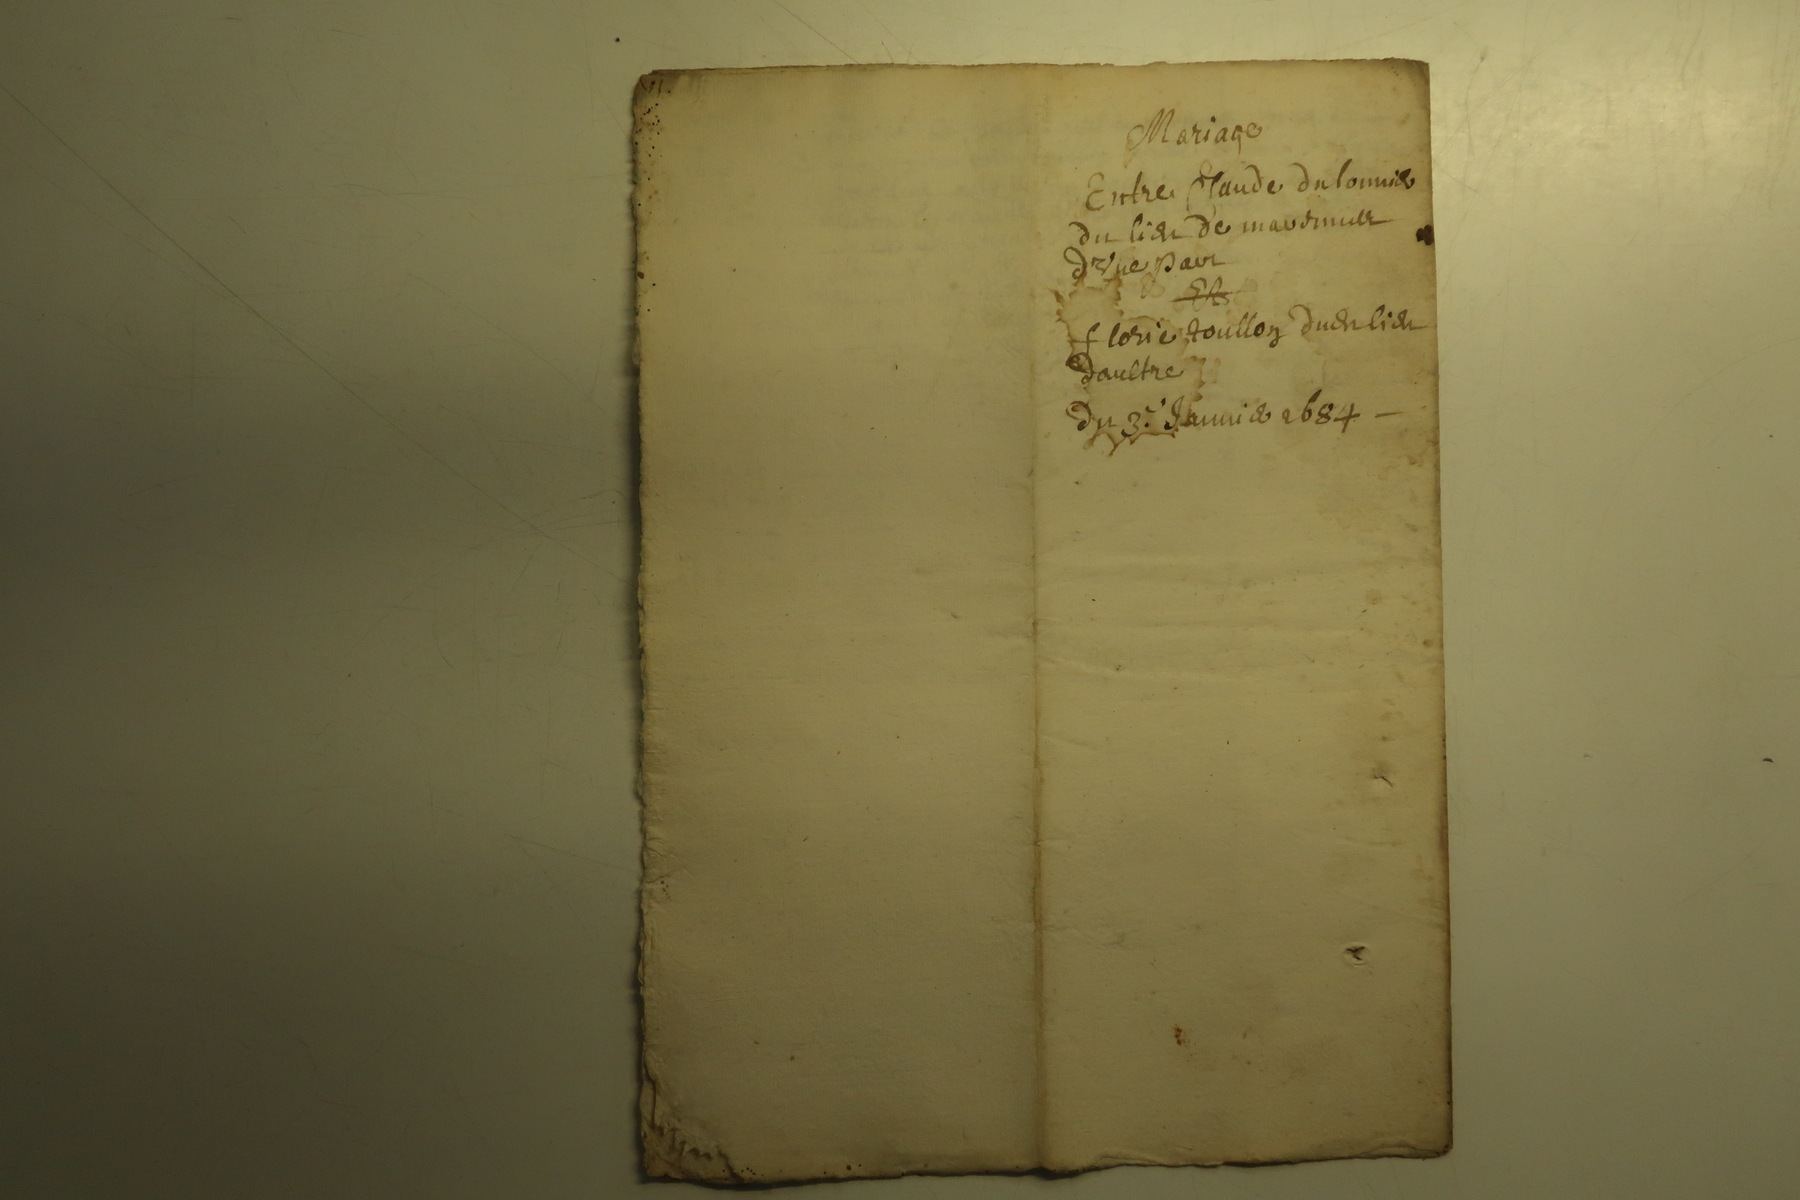 Mariage
Entre Claude dulonnier
du lieu de
d'Vne part
Et
florie toullon dud lieu
daultre
du 3e Januier 1684 —